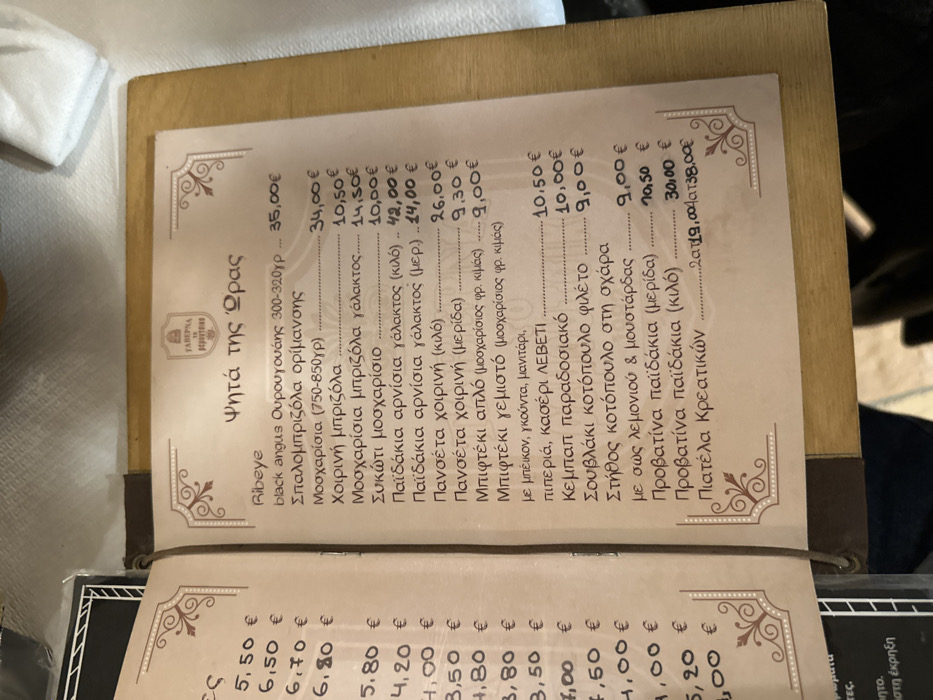 ΤΑΒΕΡΝΑ
Ψητά της Ώρας
Ribeye
black angus Ουρουγουάης 300-320γρ ... 35,00€
Σπαλομπριζόλα ορίμανσης
Μοσχαρίσια (750-850γρ) ........ 34,00€
Χοιρινή μπριζόλα ........ 10,50€
Μοσχαρίσια μπριζόλα γάλακτος ..... 14,50€
Συκώτι μοσχαρίσιο ........ 10,00€
Παϊδάκια αρνίσια γάλακτος (κιλό) .. 42,00€
Παϊδάκια αρνίσια γάλακτος (μερ.) .. 14,00€
Πανσέτα χοιρινή (κιλό) ........ 26,00€
Πανσέτα χοιρινή (μερίδα) ........ 9,30€
Μπιφτέκι απλό (μοσχαρίσιος φρ. κιμάς) ..... 9,00€
Μπιφτέκι γεμιστό (μοσχαρίσιος φρ. κιμάς)
με μπέικον, γκούντα, μανιτάρι,
πιπεριά, κασέρι ΛΕΒΕΤΙ ........ 10,50€
Κεμπαπ παραδοσιακό ........ 10,00€
Σουβλάκι κοτόπουλο φιλέτο ........ 9,00€
Στήθος κοτόπουλο στη σχάρα
με σως λεμονιού & μουστάρδας ........ 9,00€
Προβατίνα παϊδάκια (μερίδα) ........ 10,50 €
Προβατίνα παϊδάκια (κιλό) ........ 30,00 €
Πιατέλα Κρεατικών ........ 2ατ 19,00 4ατ 38,00€
5,50 €
6,50 €
6,70 €
6,80 €
5,80 €
4,20 €
,00 €
3,50 €
,80 €
3,80 €
3,50 €
,00 €
,50 €
,00 €
,00 €
5,20 €
,00 €
έκρηξη